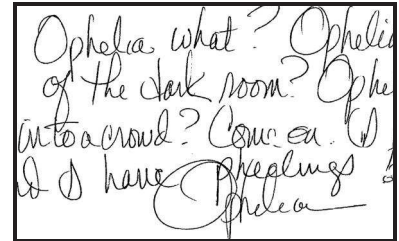 Ophelia what? Ophelia
of the dark room? Ophe
into a crowd? Come on. I
d I have Pheelings!
Ophelia